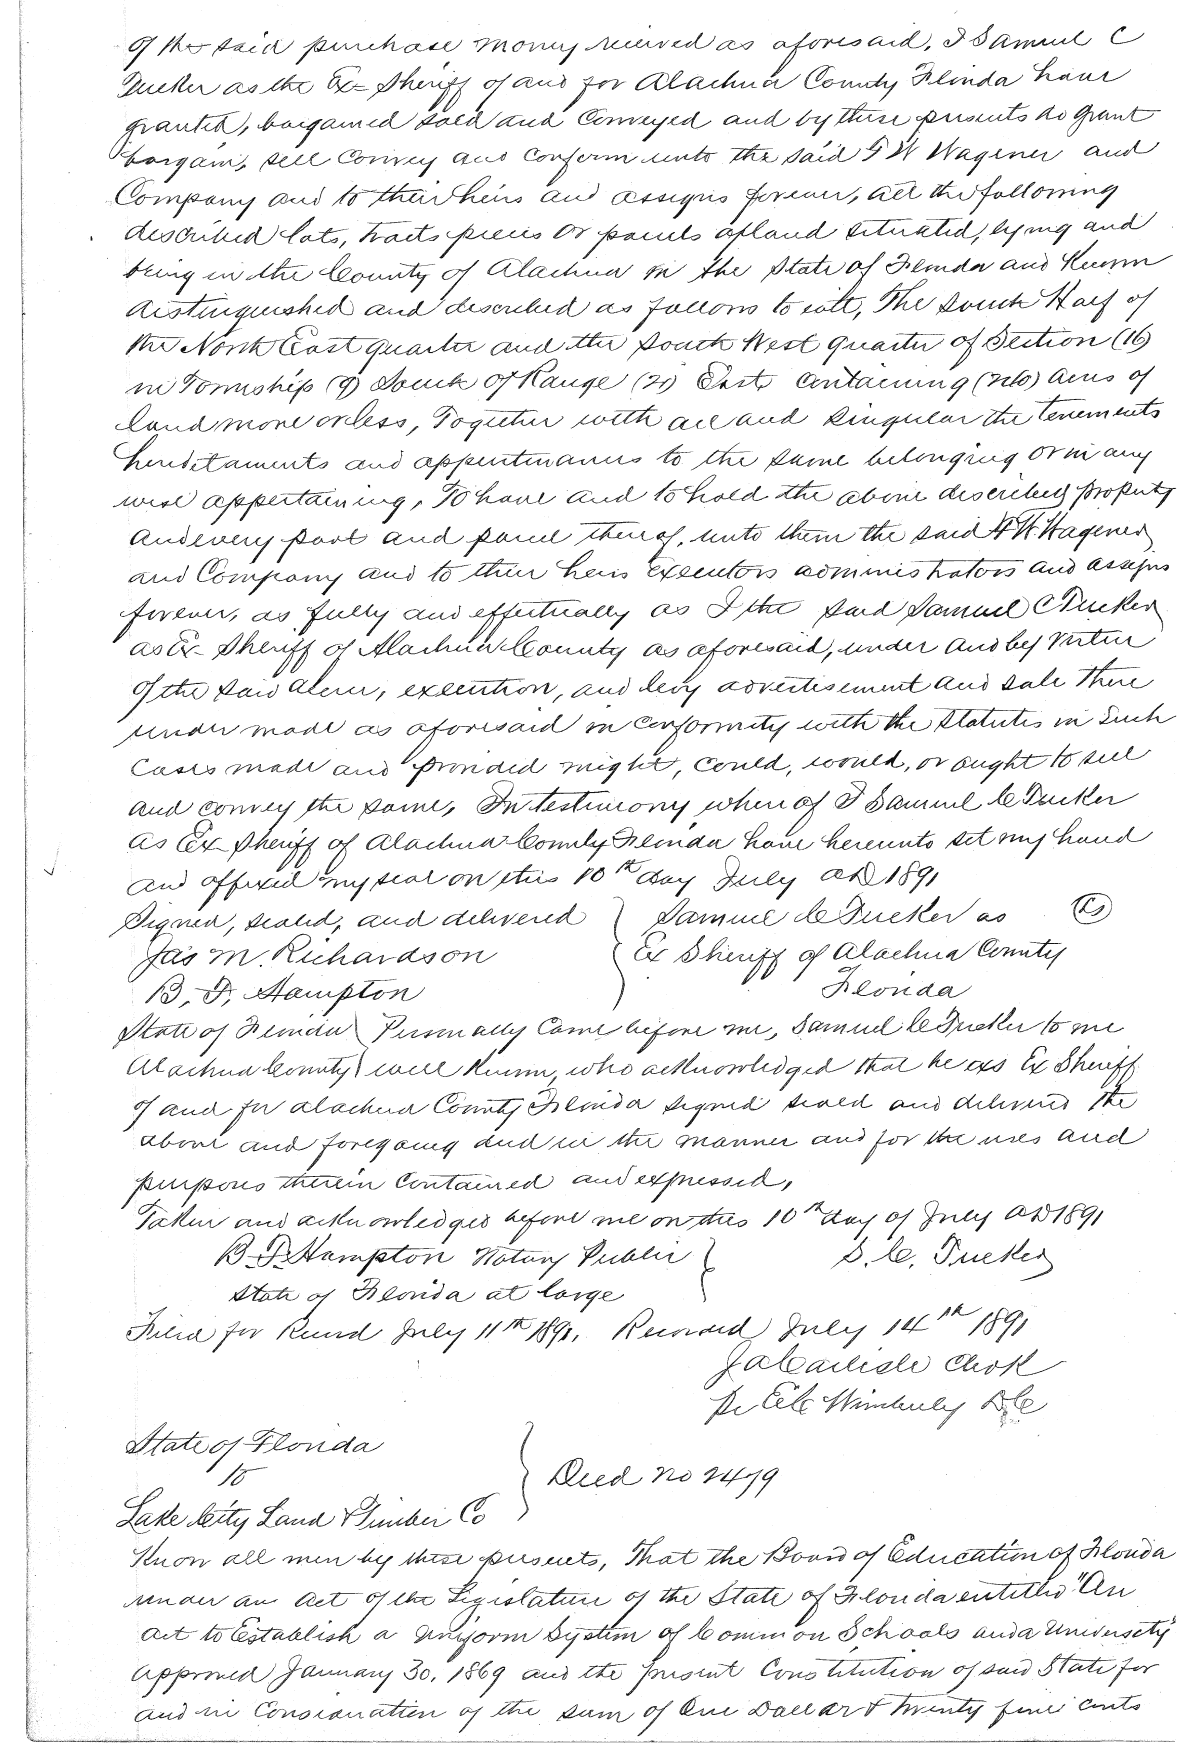 of the said purchase money received as aforesaid, I Samuel C
Tucker as the Ex-Sheriff of and for Alachua County Florida have
granted, bargained sold and conveyed and by these presents do grant
bargain, sell convey and confirm unto the said F W Wagener and
Company and to their heirs and assigns forever, all the following
described lots, tracts pieces or parcels of land situated, lying and
being in the County of Alachua in the State of Florida and Known
distinguished and described as follows to wit, The South Half of
the North East quarter and the South West quarter of Section (16)
in Township (9) South of Range (21) East containing (240) acres of
land more or less, Together with all and singular the tenements
hereditaments and appurtenances to the same belonging or in any
wise appertaining, To have and to hold the above described property
and every part and parcel thereof, unto them the said F W. Wagener
and Company and to their heirs executors administrators and assigns
forever, as fully and effectually as I the said Samuel C Tucker
as Ex-Sheriff of Alachua County as aforesaid, under and by virtue
of the said execution, and levy advertisement and sale there
under made as aforesaid in conformity with the Statutes in Such
Cases made and provided might, could, would, or ought to sell
and convey the same, In testimony whereof I Samuel C Tucker
as Ex Sheriff of Alachua County Florida have hereunto set my hand
and affixed my seal on this 10th day July AD 1891
Signed, sealed, and delivered } Samuel C Tucker as (LS)
Jas M. Richardson } Ex Sheriff of Alachua County
B. F. Hampton Florida
State of Florida } Personally Came before me, Samuel C Tucker to me
Alachua County } well Known, who acknowledged that he as Ex Sheriff
of and for Alachua County Florida signed sealed and delivered the
above and foregoing deed in the manner and for the uses and
purposes therein contained and expressed,
Taken and acknowledged before me on this 10th day of July AD 1891
B. F. Hampton Notary Public } S. C. Tucker
State of Florida at large
Filed for Record July 11th 1891. Recorded July 14th 1891
J A Carlisle Clerk
Pr Wimberly DC
State of Florida
to } Deed no 2479
Lake City Land & Timber Co
Know all men by these presents, That the Board of Education of Florida
under an Act of the Legislature of the State of Florida entitled "An
act to Establish a Uniform System of Common Schools and a University"
Approved January 30, 1869 and the present Constitution of said State for
and in Consideration of the sum of One Dollar & Twenty five cents